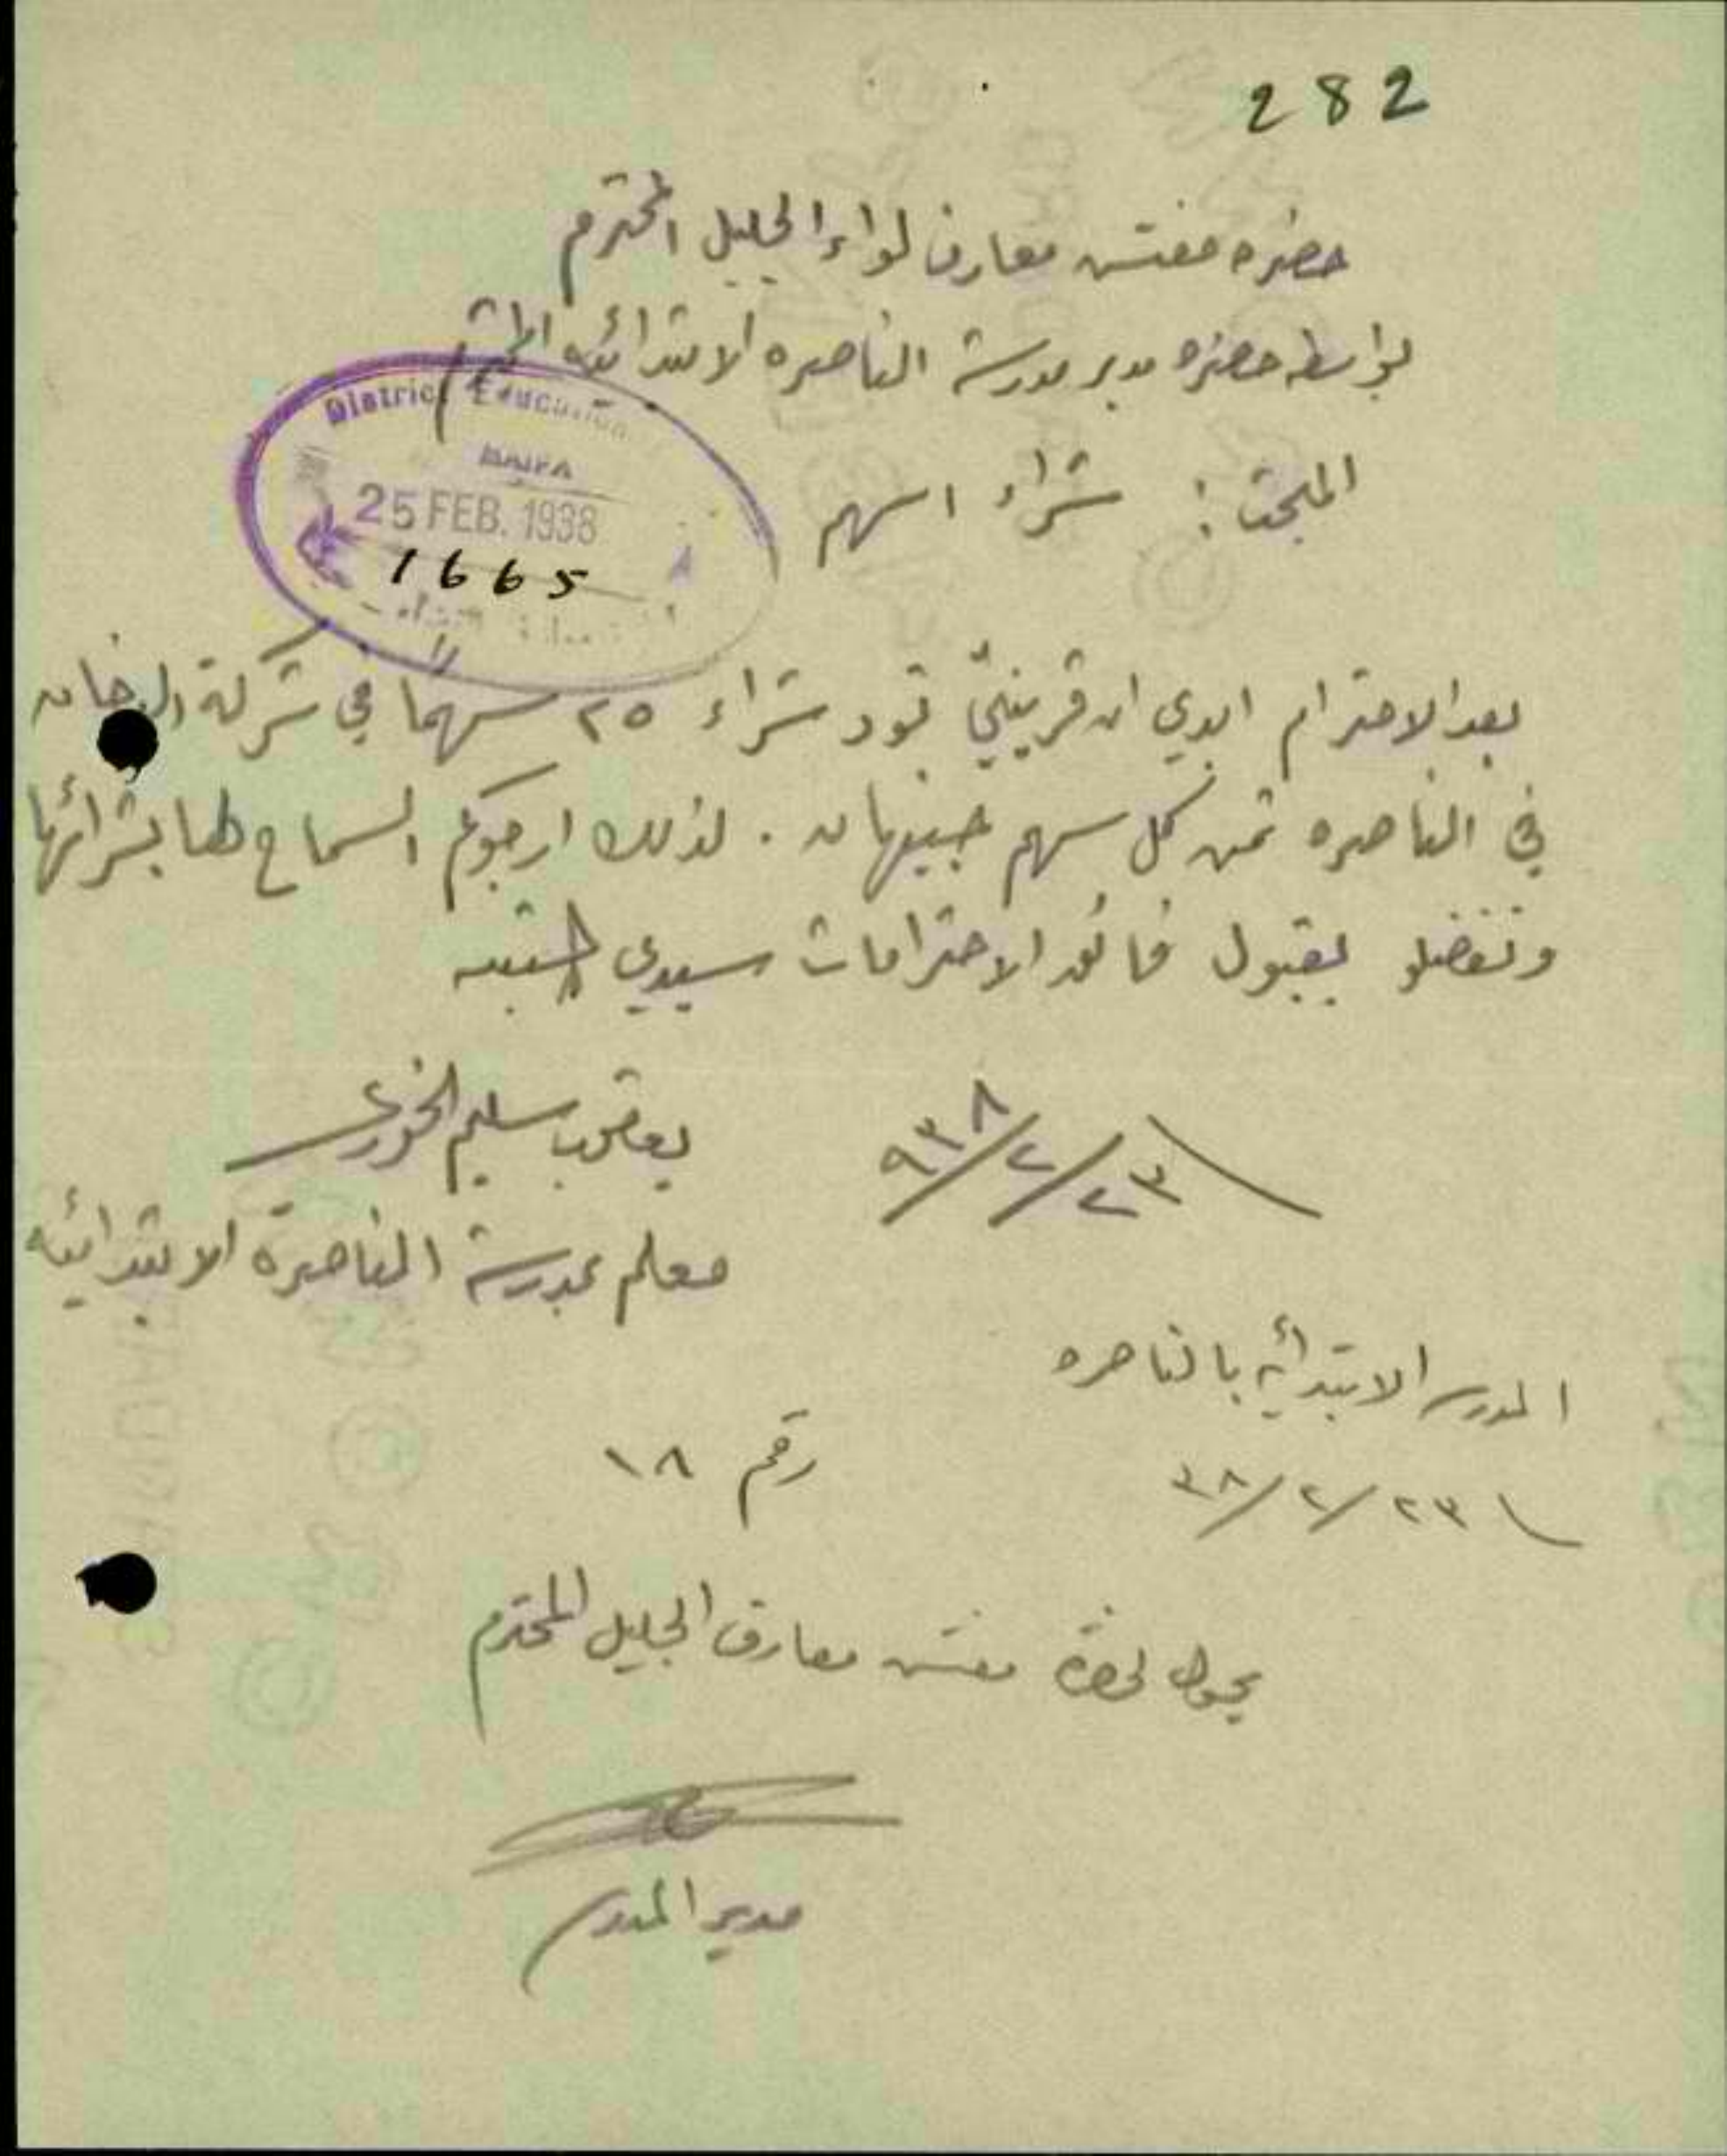 282
حضرة مفتش معارف لواء الجليل المحترم
بواسطة حضرة مدير مدرسة الناصره الابتدائيه المحترم
District Education
HAIFA
25 FEB. 1938
1665
المبحث : شراء اسهم
بعد الاحترام ابدي ان قرينتي تود شراء ٢٥ سهمًا في شركة الدخان
في الناصره ثمن كل سهم جنيهان . لذلك ارجوكم السماح لها بشرائها
وتفضلو بقبول فائق الاحترامات سيدي
يعقوب سليم الخوري
٢٣/٢/٩٣٨
معلم بمدرسة الناصرة الابتدائيه
المدرسة الابتدائية بالناصره
رقم ١٨
٢٣/٢/٣٨
يحول لحضرة مفتش معارف الجليل المحترم
مدير المدرسة